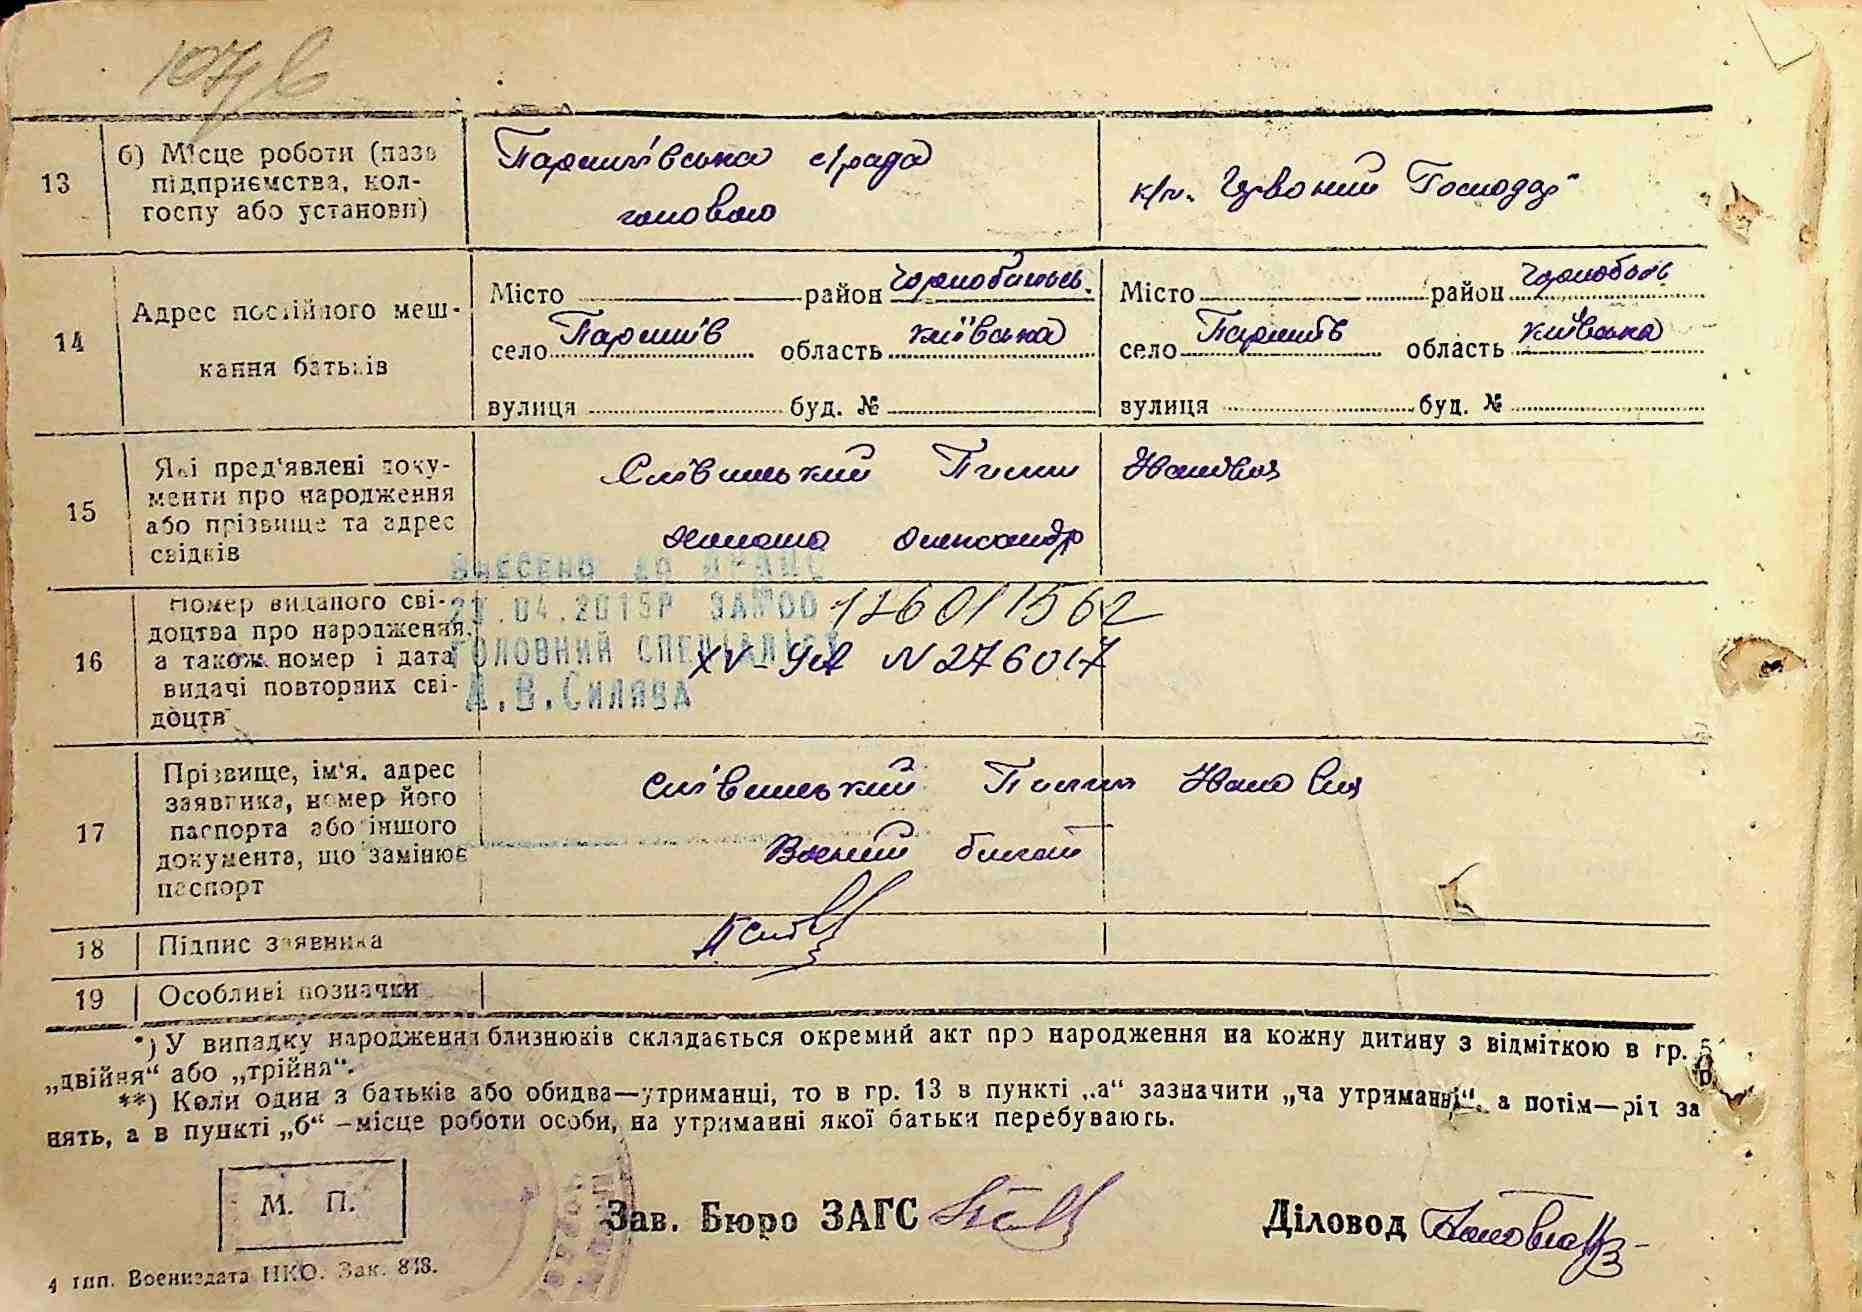 13
б) Місце роботи (назв
підприємства, кол-
госпу або установи)
Паришівська с/рада
головою
к/г. Червоний Господар
14
Адрес постійного меш-
кання батьків
Місто район Чорнобильсь.
село Паришів область київська
вулиця буд. №
Місто район Чорнобиль
село Паришів область київська
вулиця буд. №
15
Які пред'явлені доку-
менти про народження
або прізвище та адрес
свідків
Слівинський Пилип Іванович
Олександр
ВНЕСЕНО ДО ДРАЦС
.04.2015Р ЗА№00 1260/1562
ГОЛОВНИЙ СПЕЦІАЛІСТ
А.В.Силява
16
Номер виданого сві-
доцтва про народження,
а також номер і дата
видачі повторних сві-
доцтв
XV-УА N 276017
17
Прізвище, ім'я, адрес
заявника, номер його
паспорта або іншого
документа, що замінює
паспорт
Слівинський Пилип Іванович
Воєний билет
18 Підпис заявника
19 Особливі позначки
*) У випадку народження близнюків складається окремий акт про народження на кожну дитину з відміткою в гр. 5
„двійня“ або „трійня“.
**) Коли один з батьків або обидва—утриманці, то в гр. 13 в пункті „а“ зазначити „на утриманні“, а потім—рід за
нять, а в пункті „б“ —місце роботи особи, на утриманні якої батьки перебувають.
М. П.
Зав. Бюро ЗАГС
Діловод
4 тип. Воениздата НКО. Зак. 848.